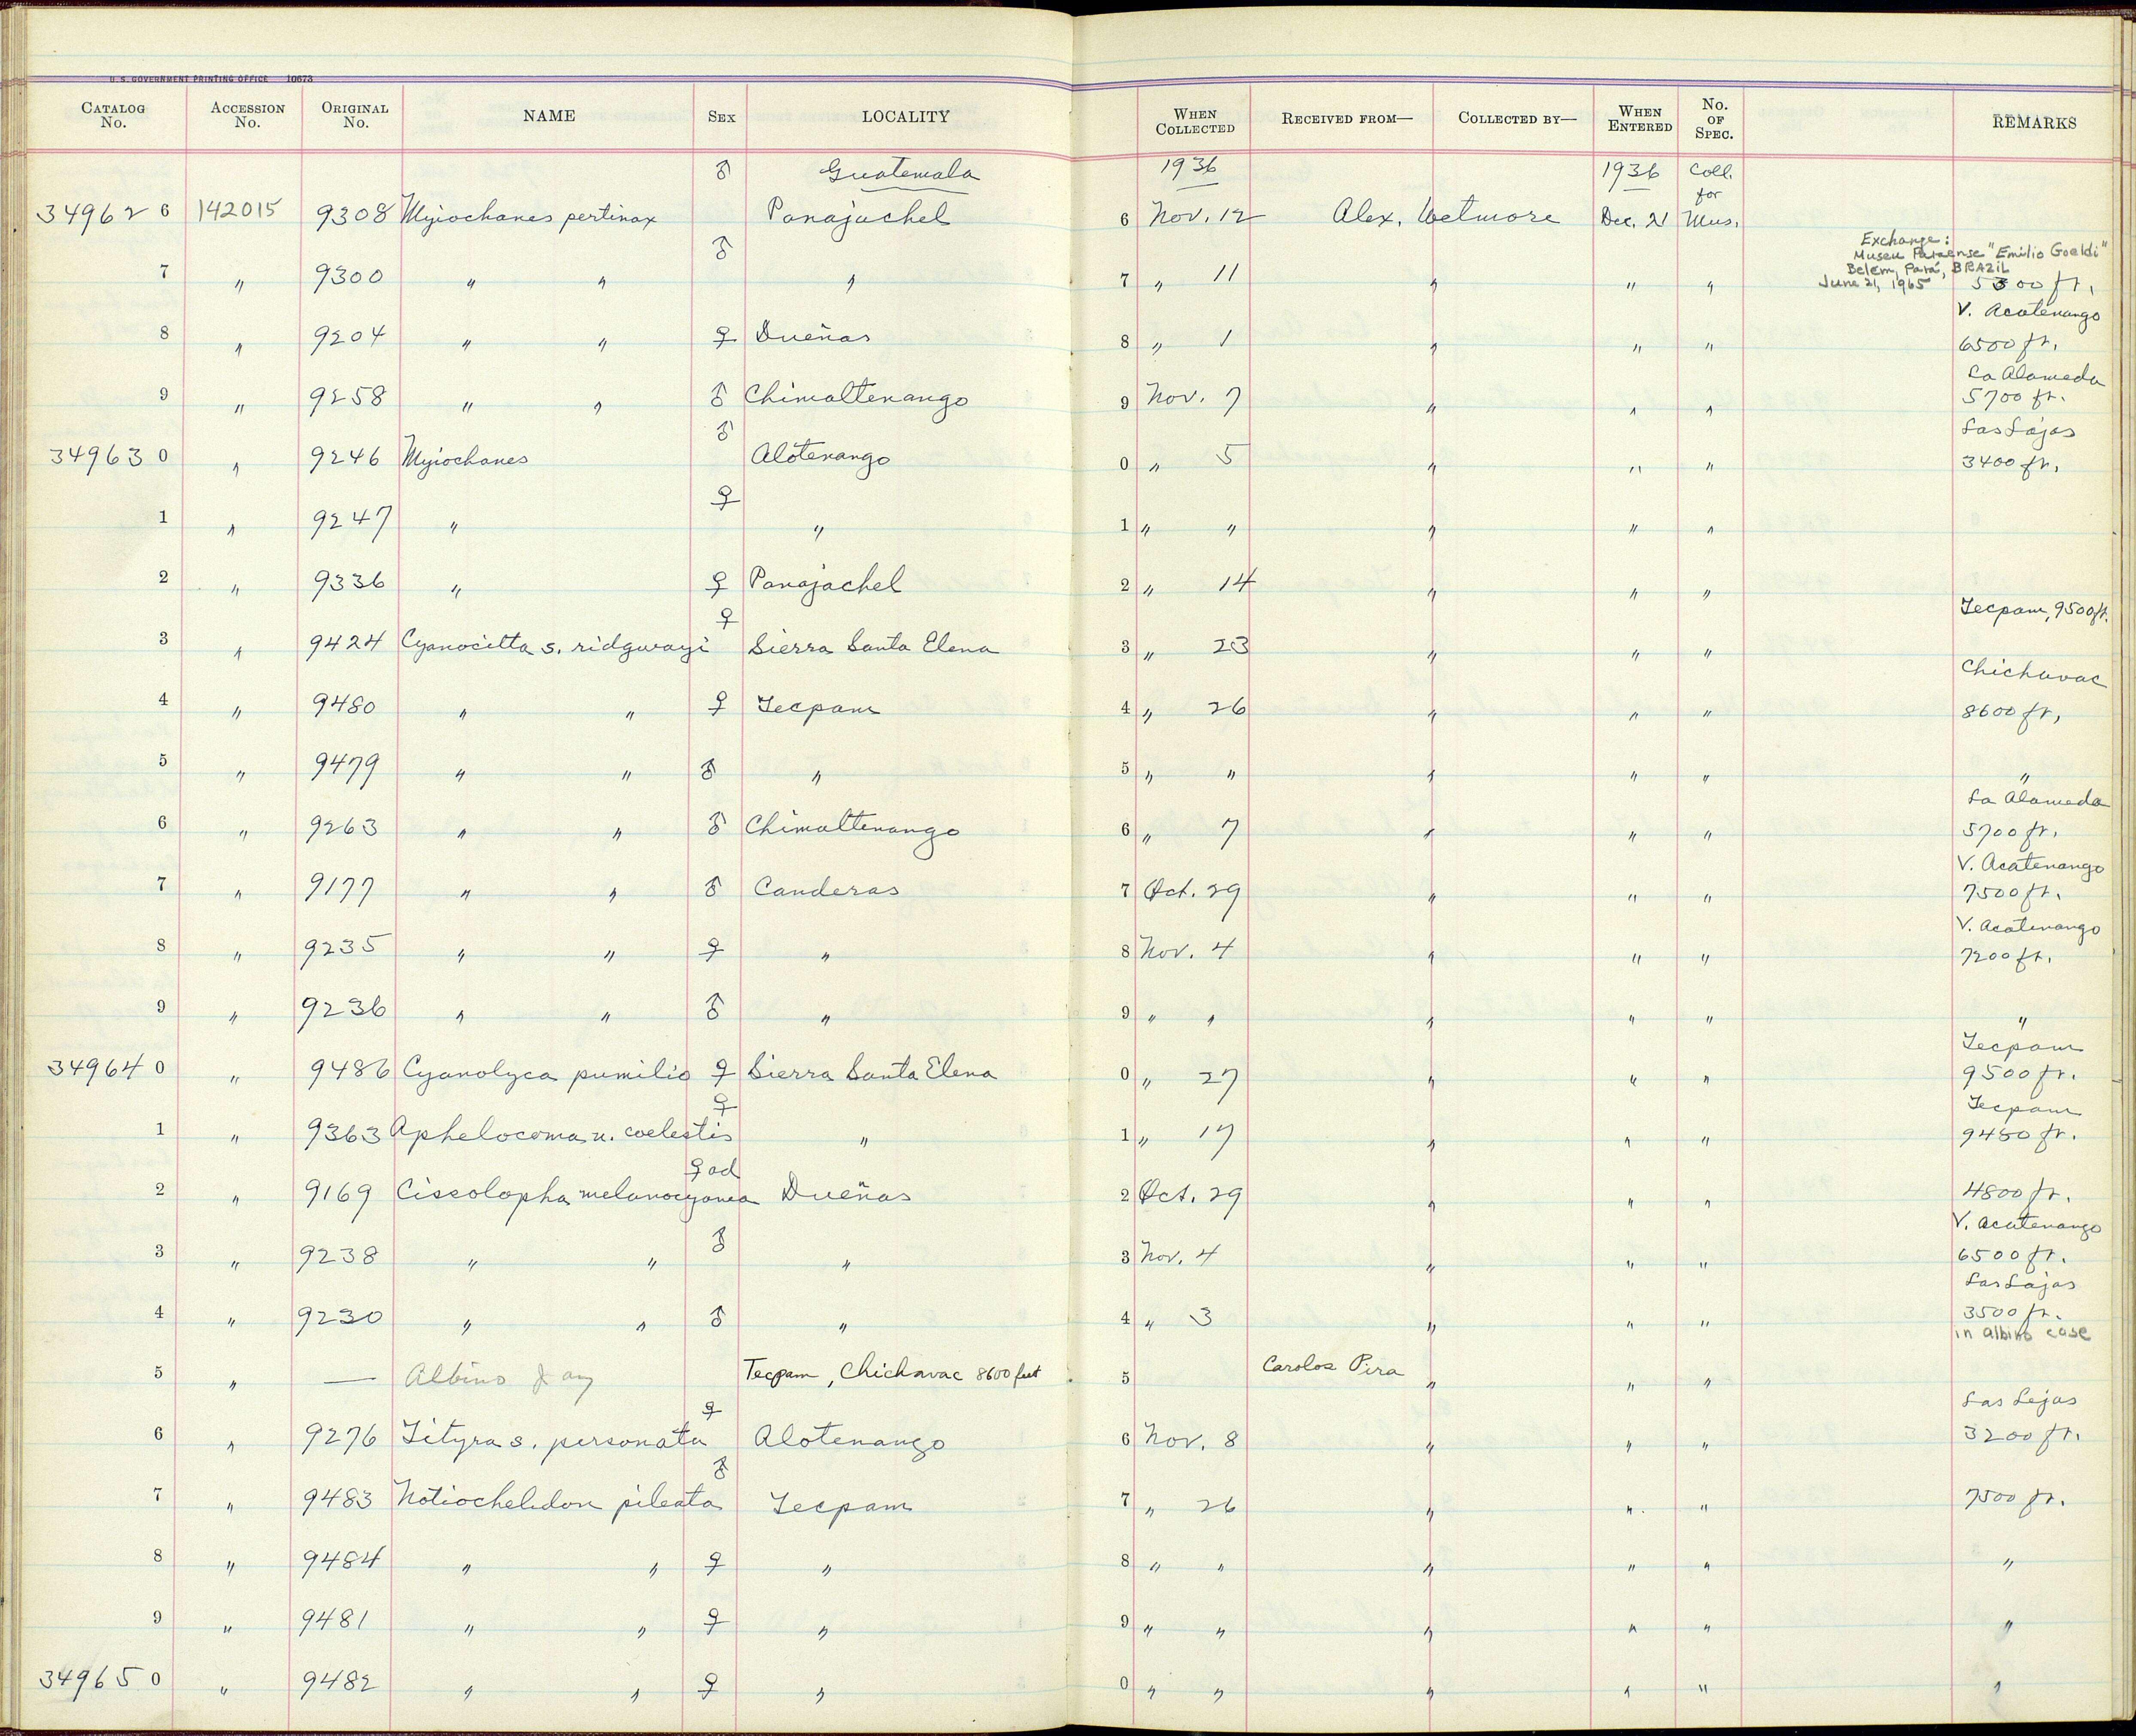 U. S. GOVERNMENT PRINTING OFFICE 10673
CATALOG No. ACCESSION No. ORIGINAL No. NAME SEX LOCALITY WHEN COLLECTED RECEIVED FROM— COLLECTED BY— WHEN ENTERED No. OF SPEC. REMARKS
♂ Guatemala 1936 1936 Coll. for
34962 6 142015 9308 Myiochanes pertinax Panajachel 6 Nov. 12 Alex. Wetmore Dec. 21 Mus.
Exchange:
Museu Paraense "Emilio Goeldi"
Belem, Pará, BRAZIL
June 21, 1965
7 " 9300 " " ♂ " 7 " 11 " " " 5300 ft.
V. Acatenango
8 " 9204 " " ♀ Dueñas 8 " 1 " " " 6500 ft.
La Alameda
9 " 9258 " " ♂ Chimaltenango 9 Nov. 7 " " " 5700 ft.
Las Lajas
34963 0 " 9246 Myiochanes ♂ Alotenango 0 " 5 " " " 3400 ft.
1 " 9247 " ♀ " 1 " " " " "
2 " 9336 " ♀ Panajachel 2 " 14 " " "
Tecpam, 9500 ft.
3 " 9424 Cyanocitta s. ridgwayi ♀ Sierra Santa Elena 3 " 23 " " "
Chichavac
4 " 9480 " " ♀ Tecpam 4 " 26 " " " 8600 ft.
5 " 9479 " " ♂ " 5 " " " " " "
La Alameda
6 " 9263 " " ♂ Chimaltenango 6 " 7 " " " 5700 ft.
V. Acatenango
7 " 9177 " " ♂ Canderas 7 Oct. 29 " " " 7500 ft.
V. Acatenango
8 " 9235 " " ♀ " 8 Nov. 4 " " " 7200 ft.
9 " 9236 " " ♂ " 9 " " " " " "
Tecpam
34964 0 " 9486 Cyanolyca pumilio ♀ Sierra Santa Elena 0 " 27 " " " 9500 ft.
Tecpam
1 " 9363 Aphelocoma u. coelestis ♀ " 1 " 17 " " " 9450 ft.
2 " 9169 Cissolopha melanocyanea ♀ ad Dueñas 2 Oct. 29 " " " 4800 ft.
V. Acatenango
3 " 9238 " " ♂ " 3 Nov. 4 " " " 6500 ft.
Las Lajas
4 " 9230 " " ♂ " 4 " 3 " " " 3500 ft.
in albino case
5 " — Albino Jay Tecpam, Chichavac 8600 feet 5 Carolos Pira " " "
Las Lejas
6 " 9276 Tityra s. personata ♀ Alotenango 6 Nov. 8 " " " 3200 ft.
7 " 9483 Notiochelidon pileata ♂ Tecpam 7 " 26 " " " 7500 ft.
8 " 9484 " " ♀ " 8 " " " " " "
9 " 9481 " " ♀ " 9 " " " " " "
34965 0 " 9482 " " ♀ " 0 " " " " " "